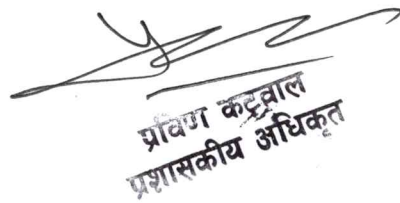 प्रविण कट्रवाल
प्रशासकीय अधिकृत